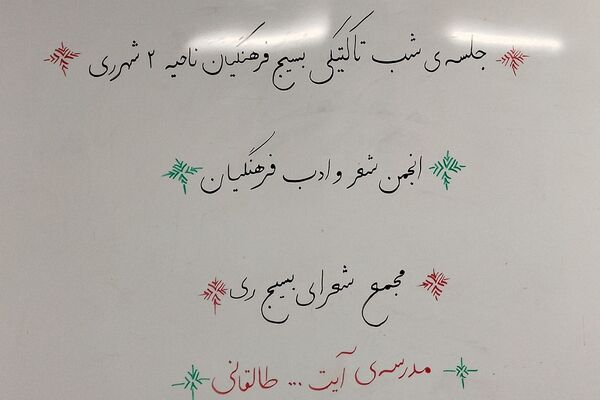 جلسه‌ی شب تاکتیکی بسیج فرهنگیان ناحیه ۲ شهرری
انجمن شعر و ادب فرهنگیان
مجمع شعرای بسیج ری
مدرسه‌ی آیت ... طالقانی